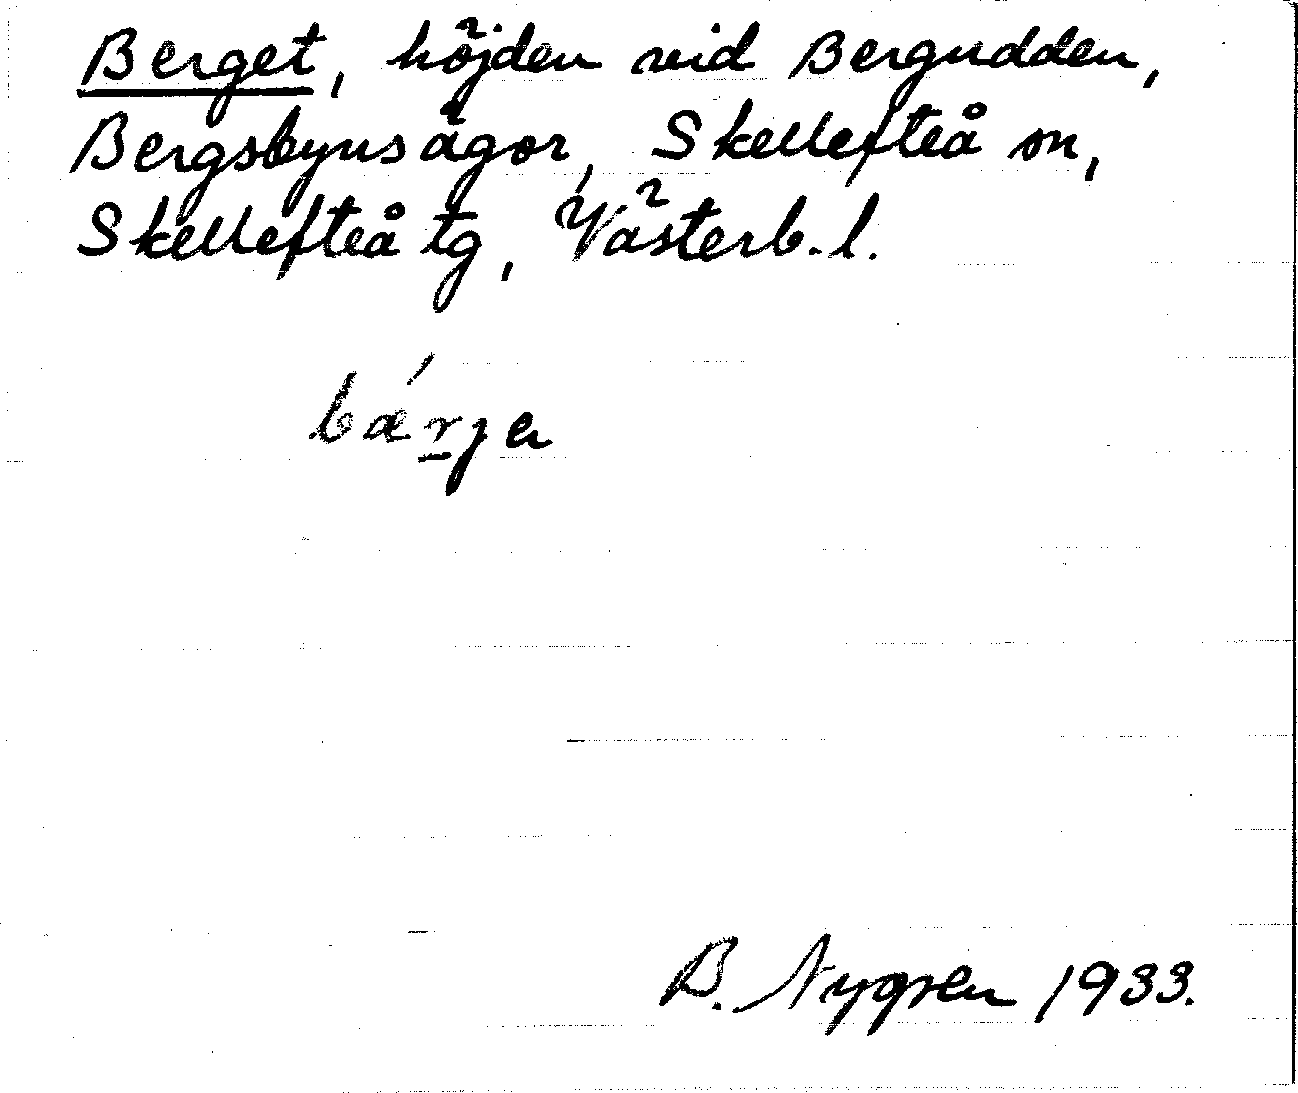 Berget, höjden vid Bergudden,
Bergsbyns ägor, Skellefteå sn,
Skellefteå tg, Västerb. l.
bǽrja
B. Nygren 1933.